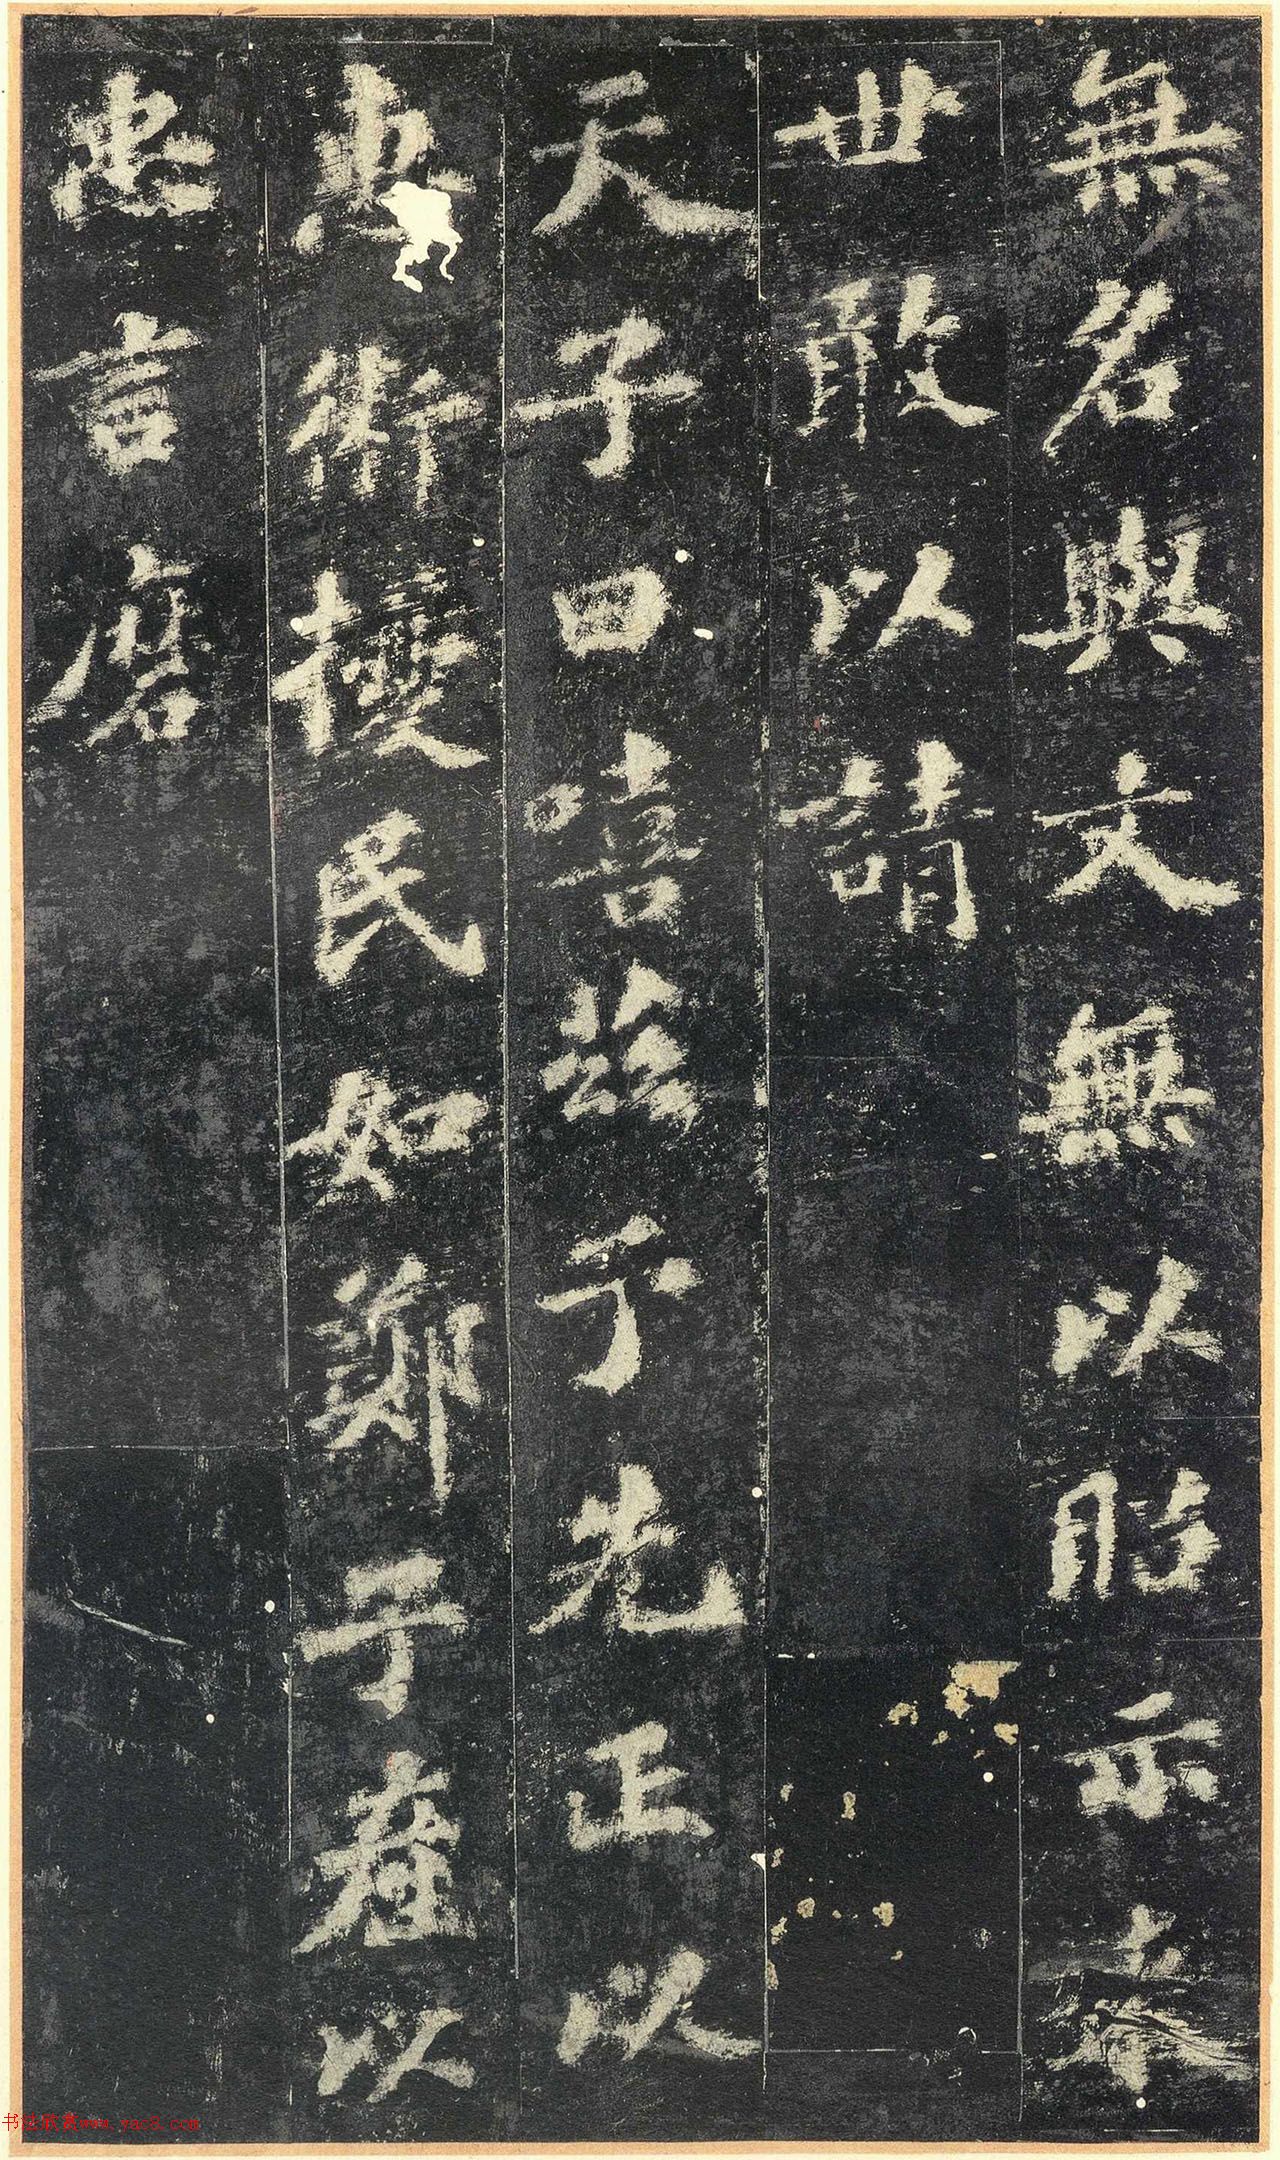 無名與文無以昭示來
世敢以請
天子曰嘻茲予先正以
惠術擾民如鄭子產以
忠言摩
书法欣赏www.yac8.com